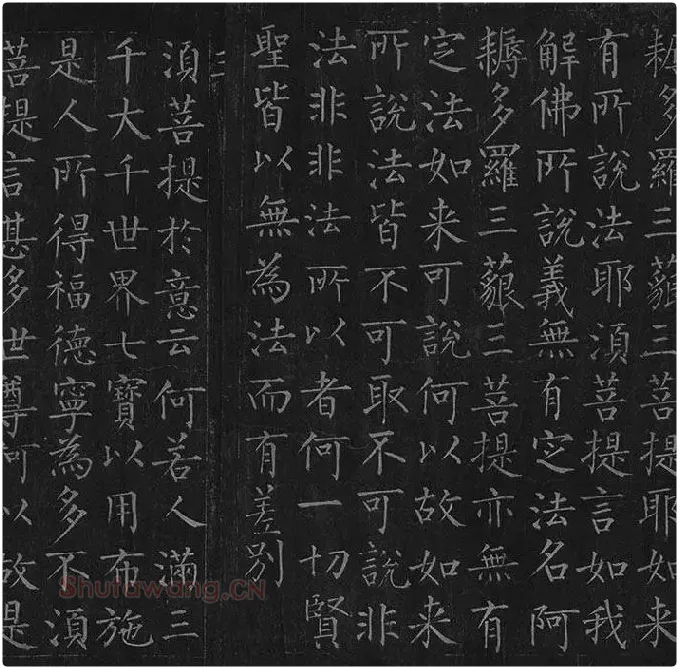 耨多羅三藐三菩提耶如来
有所說法耶須菩提言如我
解佛所說義無有定法名阿
耨多羅三藐三菩提亦無有
定法如来可說何以故如来
所說法皆不可取不可說非
法非非法所以者何一切賢
聖皆以無為法而有差別
須菩提於意云何若人滿三
千大千世界七寶以用布施
是人所得福德寧為多不須
菩提言甚多世尊何以故是
Shufawang.CN